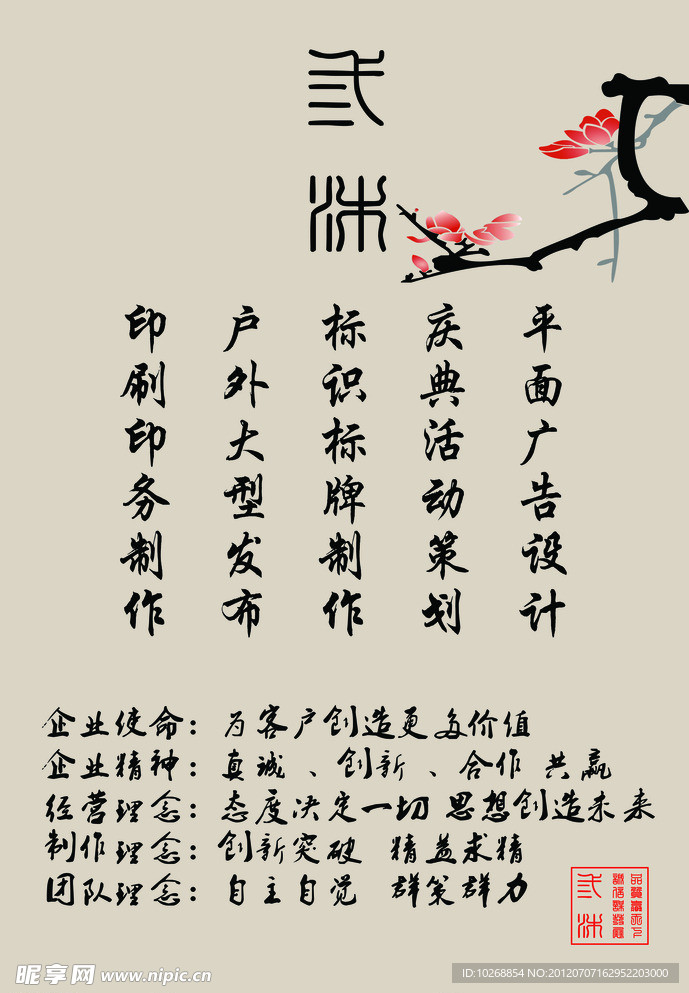 平面广告设计
庆典活动策划
标识标牌制作
户外大型发布
印刷印务制作
企业使命：为客户创造更多价值
企业精神：真诚、创新、合作 共赢
经营理念：态度决定一切 思想创造未来
制作理念：创新突破 精益求精
团队理念：自主自觉 群策群力
昵享网 www.nipic.cn
ID:10268854 NO:20120707162952203000